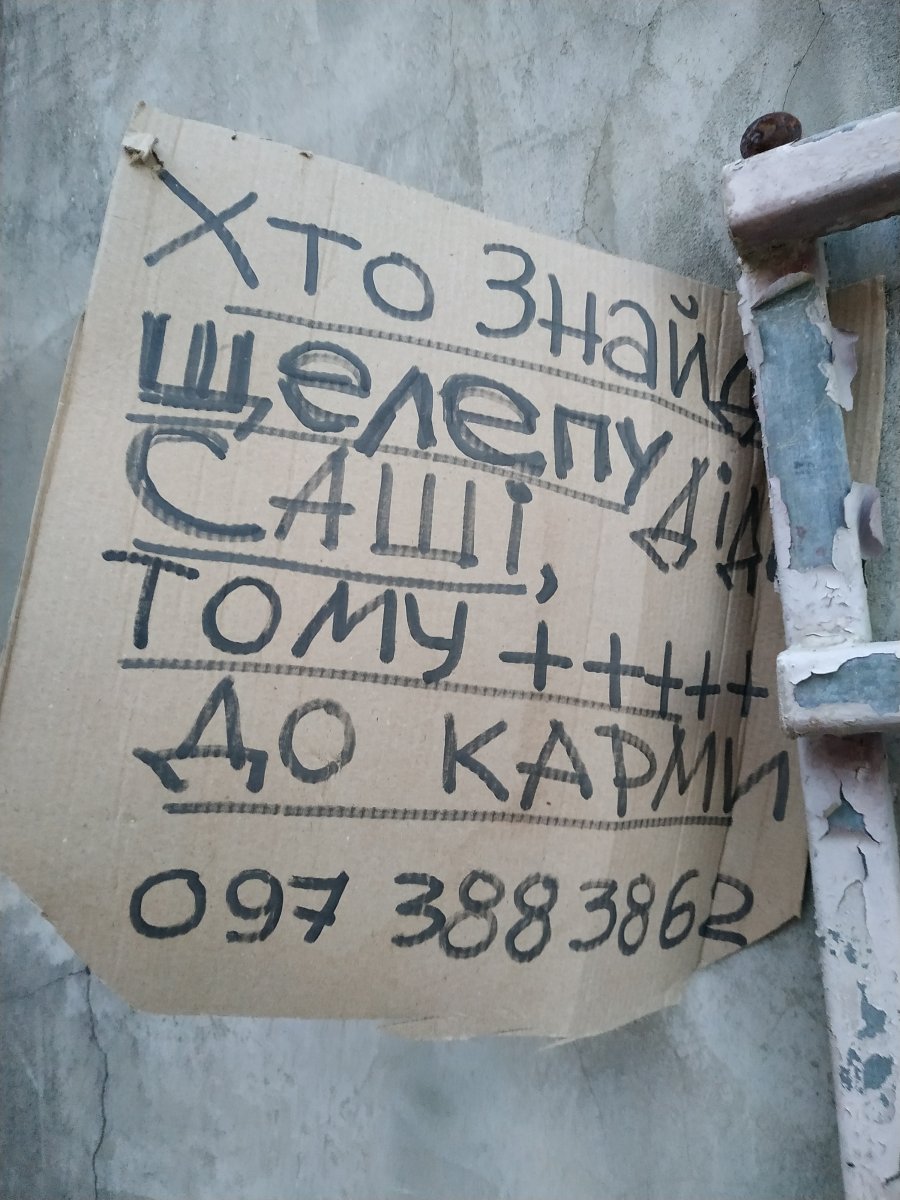 Хто знайде
щелепу діда
Саші,
тому +++++
до карми
097 388 3862